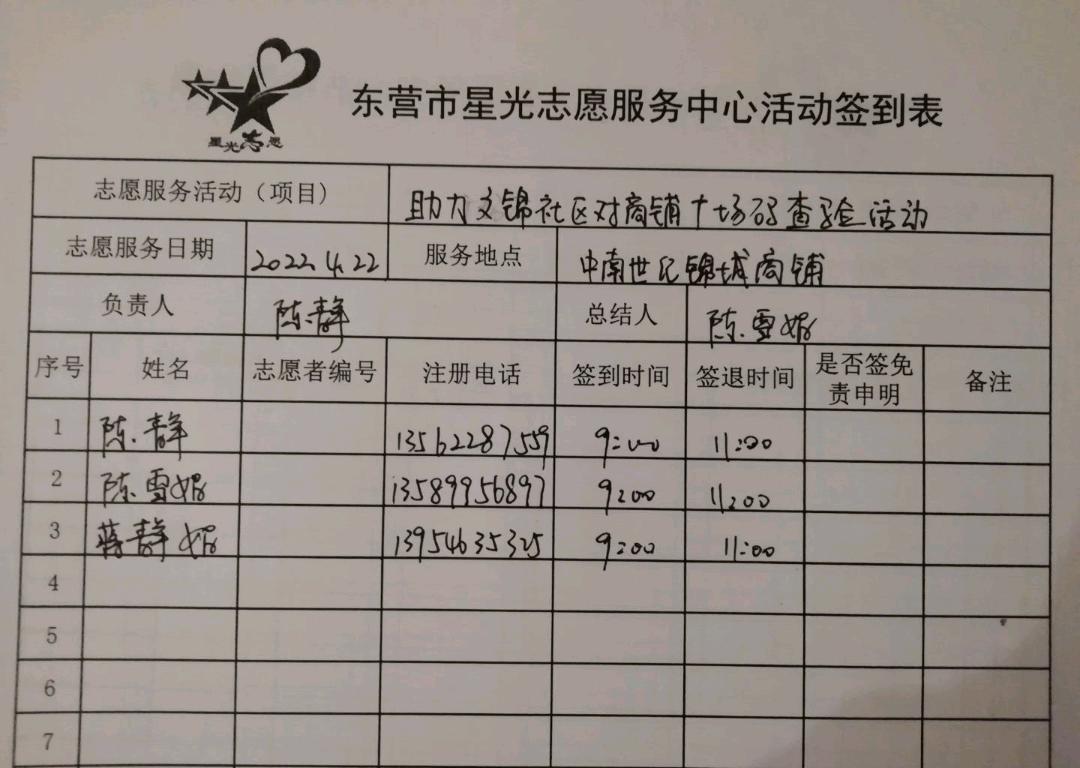 星光志愿
东营市星光志愿服务中心活动签到表
志愿服务活动（项目） 助力文锦社区对商铺十场码查验活动
志愿服务日期 2022.4.22 服务地点 中南世纪锦城商铺
负责人 陈静 总结人 陈雪妮
序号 姓名 志愿者编号 注册电话 签到时间 签退时间 是否签免责申明 备注
1 陈静 13562287559 9:00 11:00
2 陈雪妮 13589956897 9:00 11:00
3 蒋静妮 13954635325 9:00 11:00
4
5
6
7